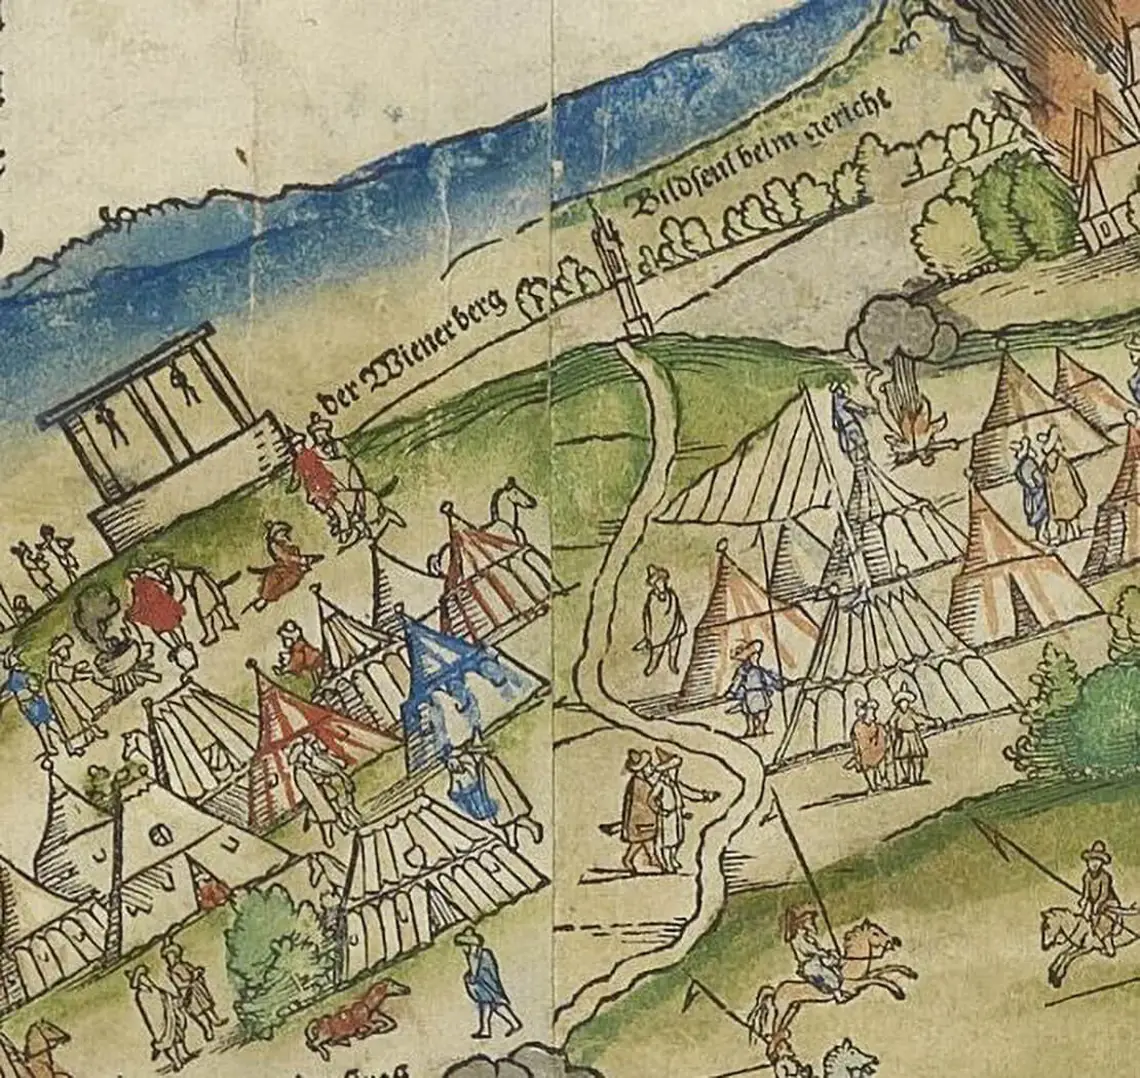 Bildseul beim gericht
der Wienerberg